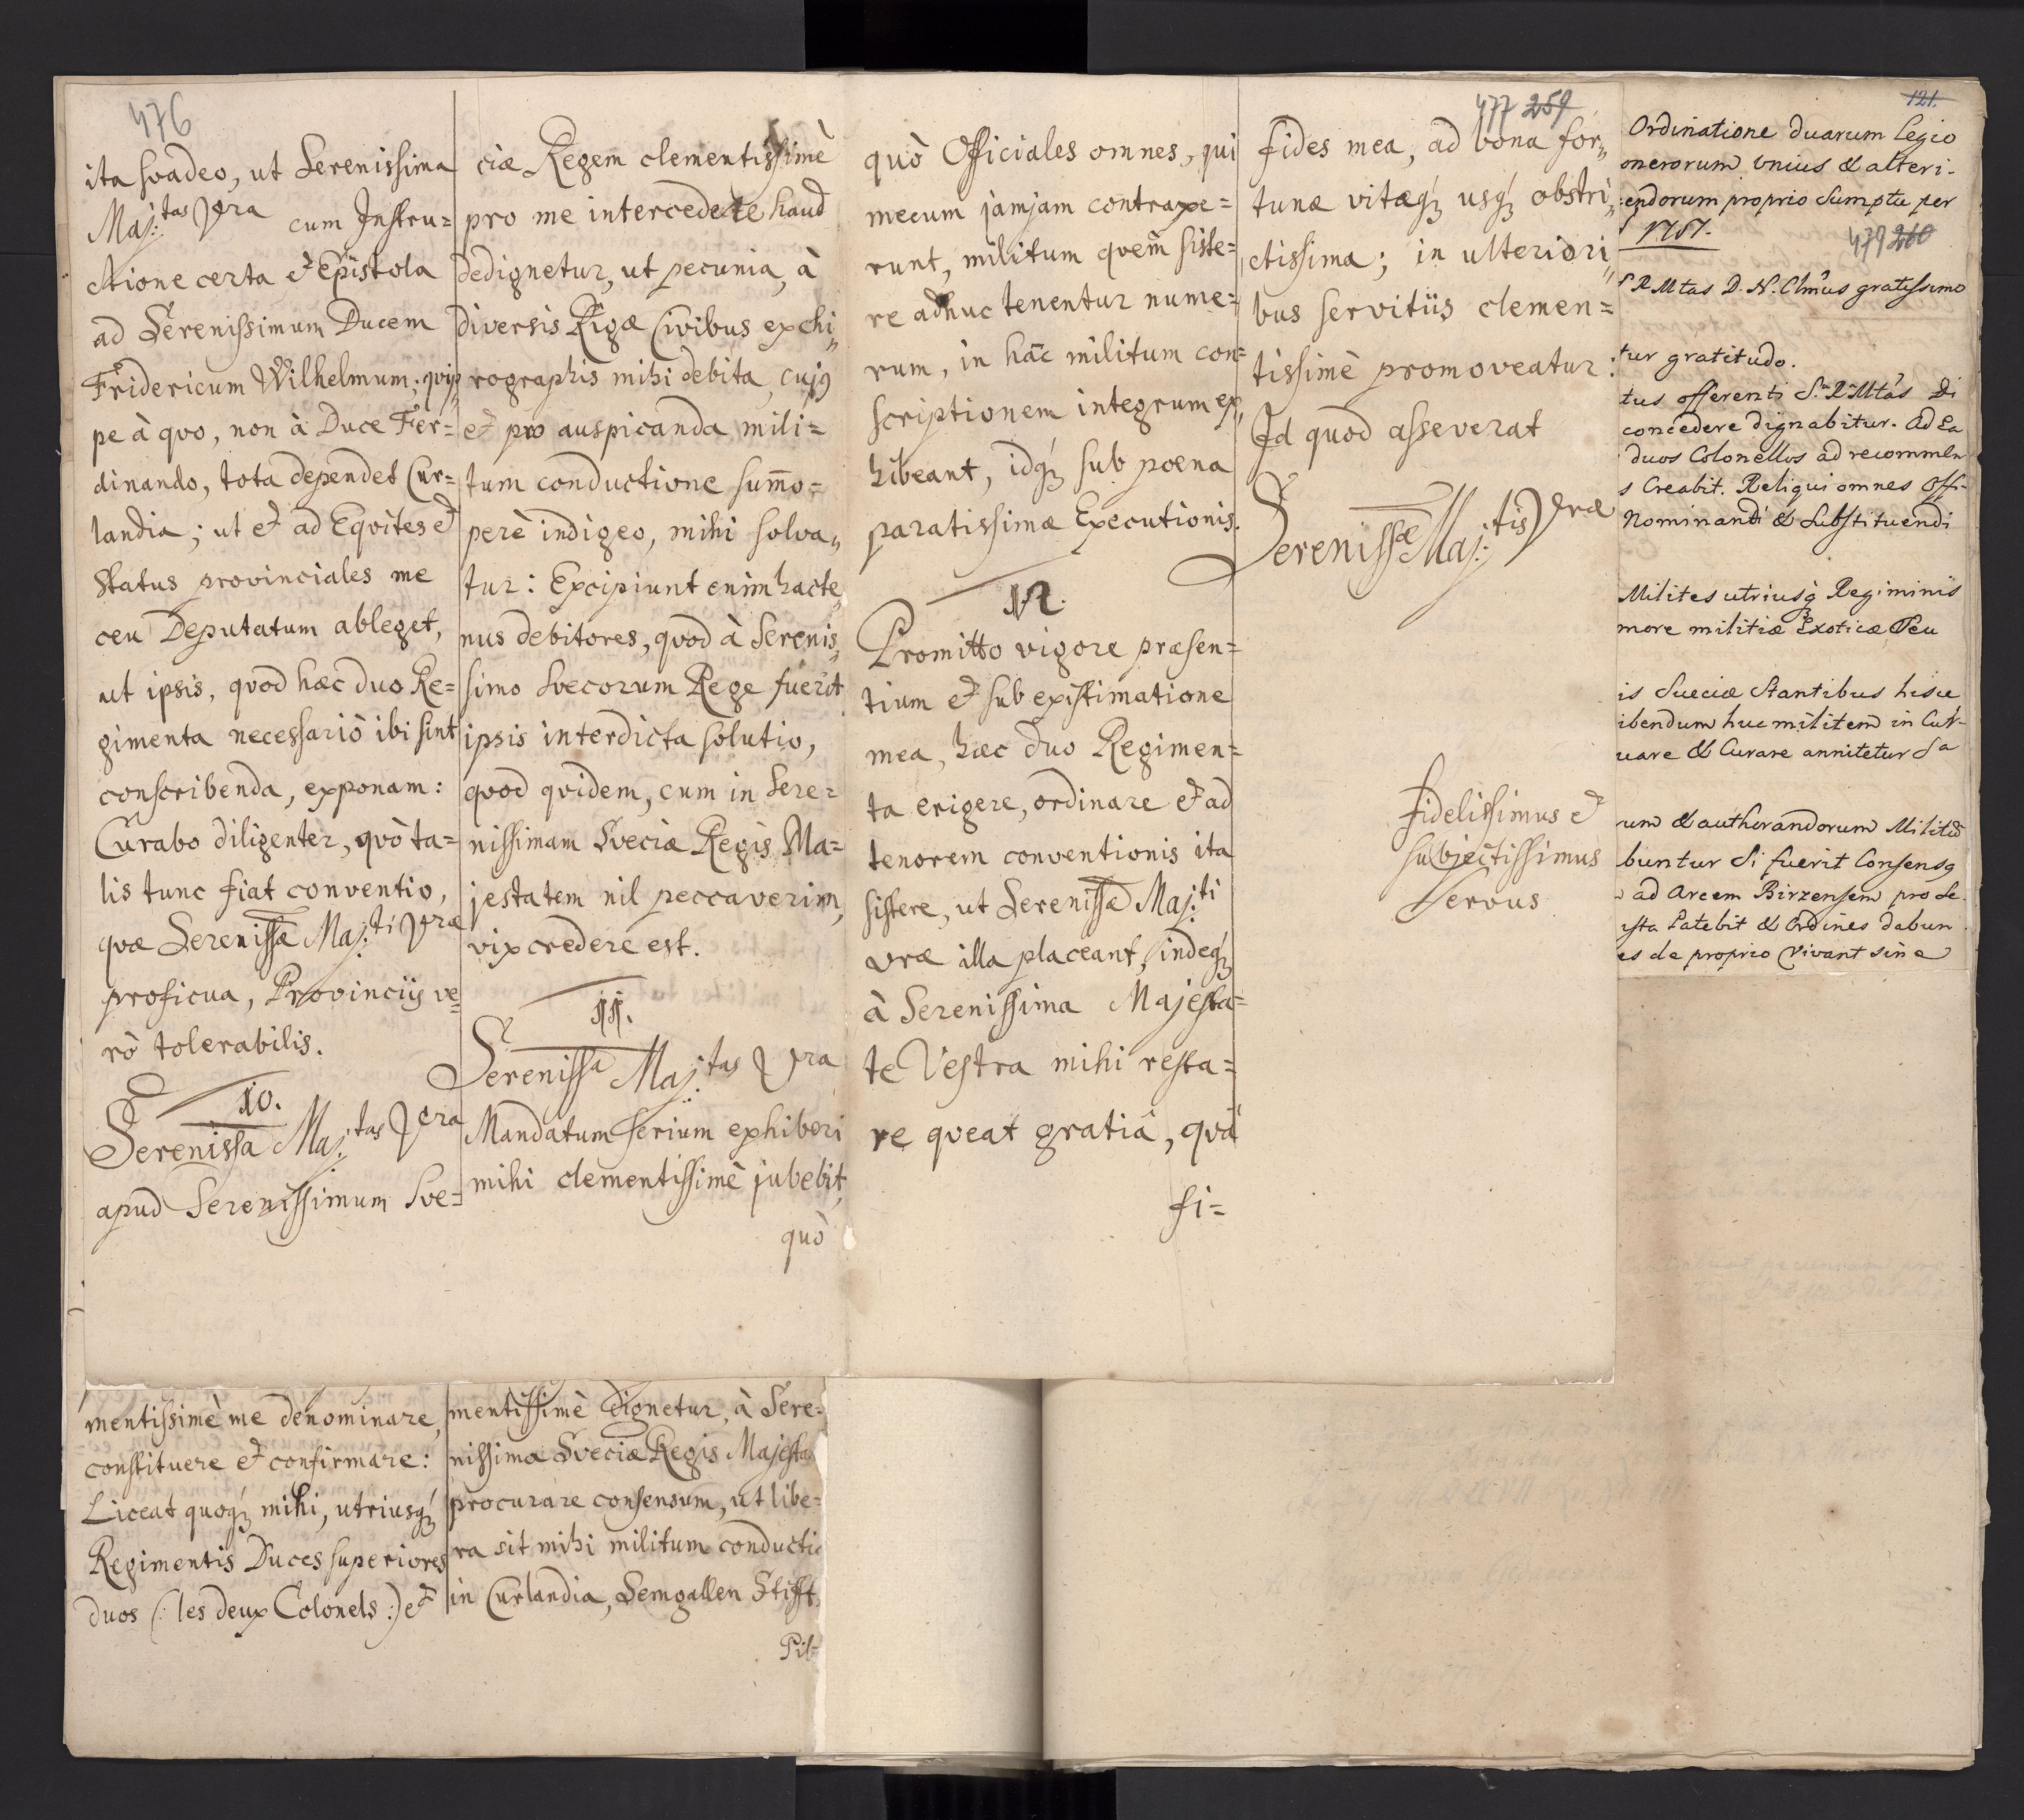 476
ita svadeo, ut Serenissima
Maj:tas Vra cum Instru=
ctione certa et Epistola
ad Serenissimum Ducem
Fridericum Wilhelmum; qvip„
pe à qvo, non à Duce Fer=
dinando, tota dependet Cur=
landia; ut et ad Eqvites et
Status provinciales me
ceu Deputatum ableget,
ut ipsis, qvod hæc duo Re=
gimenta necessariò ibi sint
conscribenda, exponam:
Curabo diligenter, qvò ta=
lis tunc fiat conventio,
qvæ Serenissæ Maj:ti Vræ
proficua, Provinciis ve=
rò tolerabilis.
10.
Serenissa Maj:tas Vra
apud Serenissimum Sve=
ciæ Regem clementissimè
pro me intercedere haud
dedignetur, ut pecunia, à
diversis Rigæ Civibus ex chi„
rographis mihi debita, cujꝯ
et pro auspicanda mili=
tum conductione sum̄o=
perè indigeo, mihi solva„
tur: Excipiunt enim hacte„
nus debitores, qvod à Serenis„
simo Svecorum Rege fuerit
ipsis interdicta solutio,
qvod qvidem, cum in Sere=
nissimam Sveciæ Regis Ma=
jestatem nil peccaverim,
vix credere est.
11.
Serenissa Maj:tas Vra
Mandatum serium exhiberi
mihi clementissimè jubebit,
quò
quò Officiales omnes, qui
mecum jamjam contraxe=
runt, militum qvem siste=
re adhuc tenentur nume=
rum, in hāc militum con=
scriptionem integrum ex„
hibeant, idq́ꝫ sub poena
paratissimæ Executionis.
12.
Promitto vigore præsen=
tium et sub existimatione
mea, hæc duo Regimen=
ta erigere, ordinare et ad
tenorem conventionis ita
sistere, ut Serenissæ Maj:ti
Vræ illa placeant, indeq́ꝫ
à Serenissima Majesta=
te Vestra mihi resta=
re qveat gratiâ, qvâ
fi=
477 259
fides mea, ad bona for„
tunæ vitæq́ꝫ usq́ꝫ obstri„
ctissima; in ulteriori„
bus servitiis clemen=
tissimè promoveatur:
Id quod asseverat
Serenissæ Maj:tis Vræ
fidelissimus et
subjectissimus
Servus
121.
Ordinatione duarum legio
onerorum unius & alteri.
endorum proprio Sumptu per
479 260
S R Mtas D. N. Clmus gratissimo
tur gratitudo.
tus offerenti Sa R Mtas Di
concedere dignabitur. Ad Ea
duos Colonellos ad recommen
s Creabit. Reliqui omnes Offi-
Nominandi & Substituendi
Milites utriusq́ꝫ Regiminis
more militiæ Exoticæ Seu
is Sueciæ Stantibus hisce
ibendum huc militem in Cur-
uare & Curare annitetur Sa
um & authorandorum Militū
buntur Si fuerit Consensꝯ
ad Arcem Birzensem pro Se.
ista Patebit & Ordines dabun
es de proprio Vivant sine
mentissimè me denominare,
constituere et confirmare:
Liceat quoq́ꝫ mihi, utriusq́ꝫ
Regimentis Duces superiores
duos (: les deux Colonels :) et
mentissimè dignetur, à Sere=
nissima Sveciæ Regis Majesta
procurare consensum, ut libe=
ra sit mihi militum conductio
in Curlandia, Semgallen Stifft,
Pil=